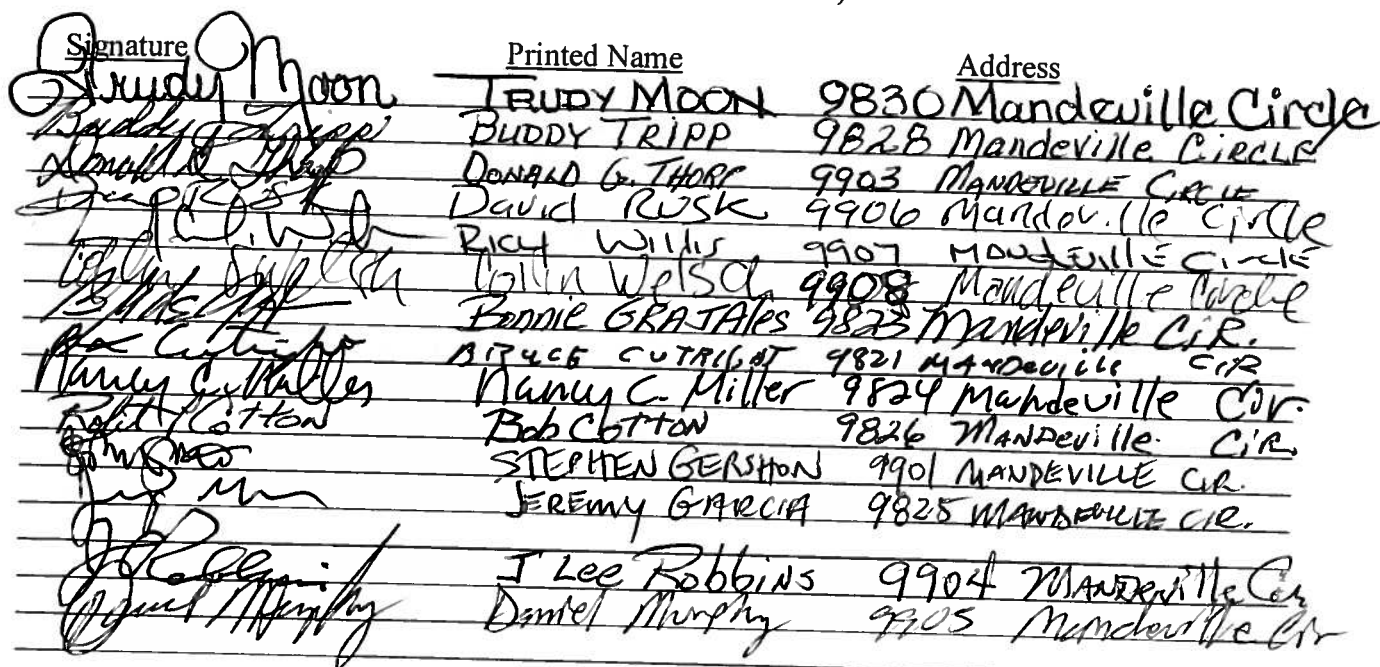 Signature Printed Name Address
Trudy Moon TRUDY MOON 9830 Mandeville Circle
Buddy G Tripp BUDDY TRIPP 9828 Mandeville CIRCLE
Donald G. Thorp DONALD G. THORP 9903 MANDEVILLE CIRCLE
David RUSK 9906 Mandeville Circle
RICH WILLIS 9907 MANDEVILLE CIRCLE
Collin Welsch Collin Welsch 9908 Mandeville Circle
Bonnie GRAJAles 9823 Mandeville CiR.
BRUCE CUTRIGHT 9821 MANDEVILLE CIR
Nancy C. Miller Nancy C. Miller 9824 Mandeville Cir.
Robert Cotton Bob COTTON 9826 MANDeville CiR.
STEPHEN GERSHON 9901 MANDEVILLE CIR.
JEREMY GARCIA 9825 MANDEVILLE CIR.
J Lee Robbins 9904 MANDEville Cir
Daniel Murphy Daniel Murphy 9905 Mandeville Cir